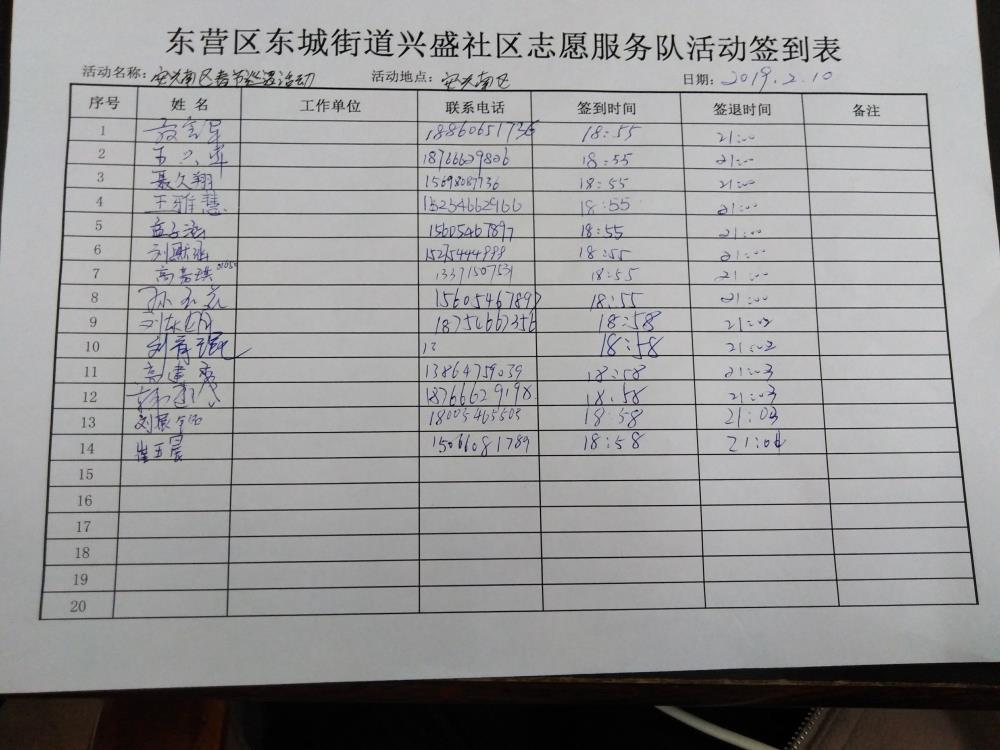 东营区东城街道兴盛社区志愿服务队活动签到表
活动名称：安兴南区春节巡逻活动 活动地点：安兴南区 日期：2019.2.10
序号 姓名 工作单位 联系电话 签到时间 签退时间 备注
1 18860651736 18:55 21:00
2 18766629806 18:55 21:00
3 聂久翔 15698087736 18:55 21:00
4 王雅慧 15254662966 18:55 21:00
5 孟子涵 15605467897 18:55 21:00
6 刘默涵 15275444999 18:55 21:00
7 高嘉琪 13371507531 18:55 21:00
8 15605467897 18:55 21:00
9 18754667356 18:58 21:02
10 13 18:58 21:02
11 高建秀 13864759039 18:58 21:03
12 18766629198 18:58 21:03
13 18005465503 18:58 21:03
14 崔玉晨 15066081789 18:58 21:04
15
16
17
18
19
20